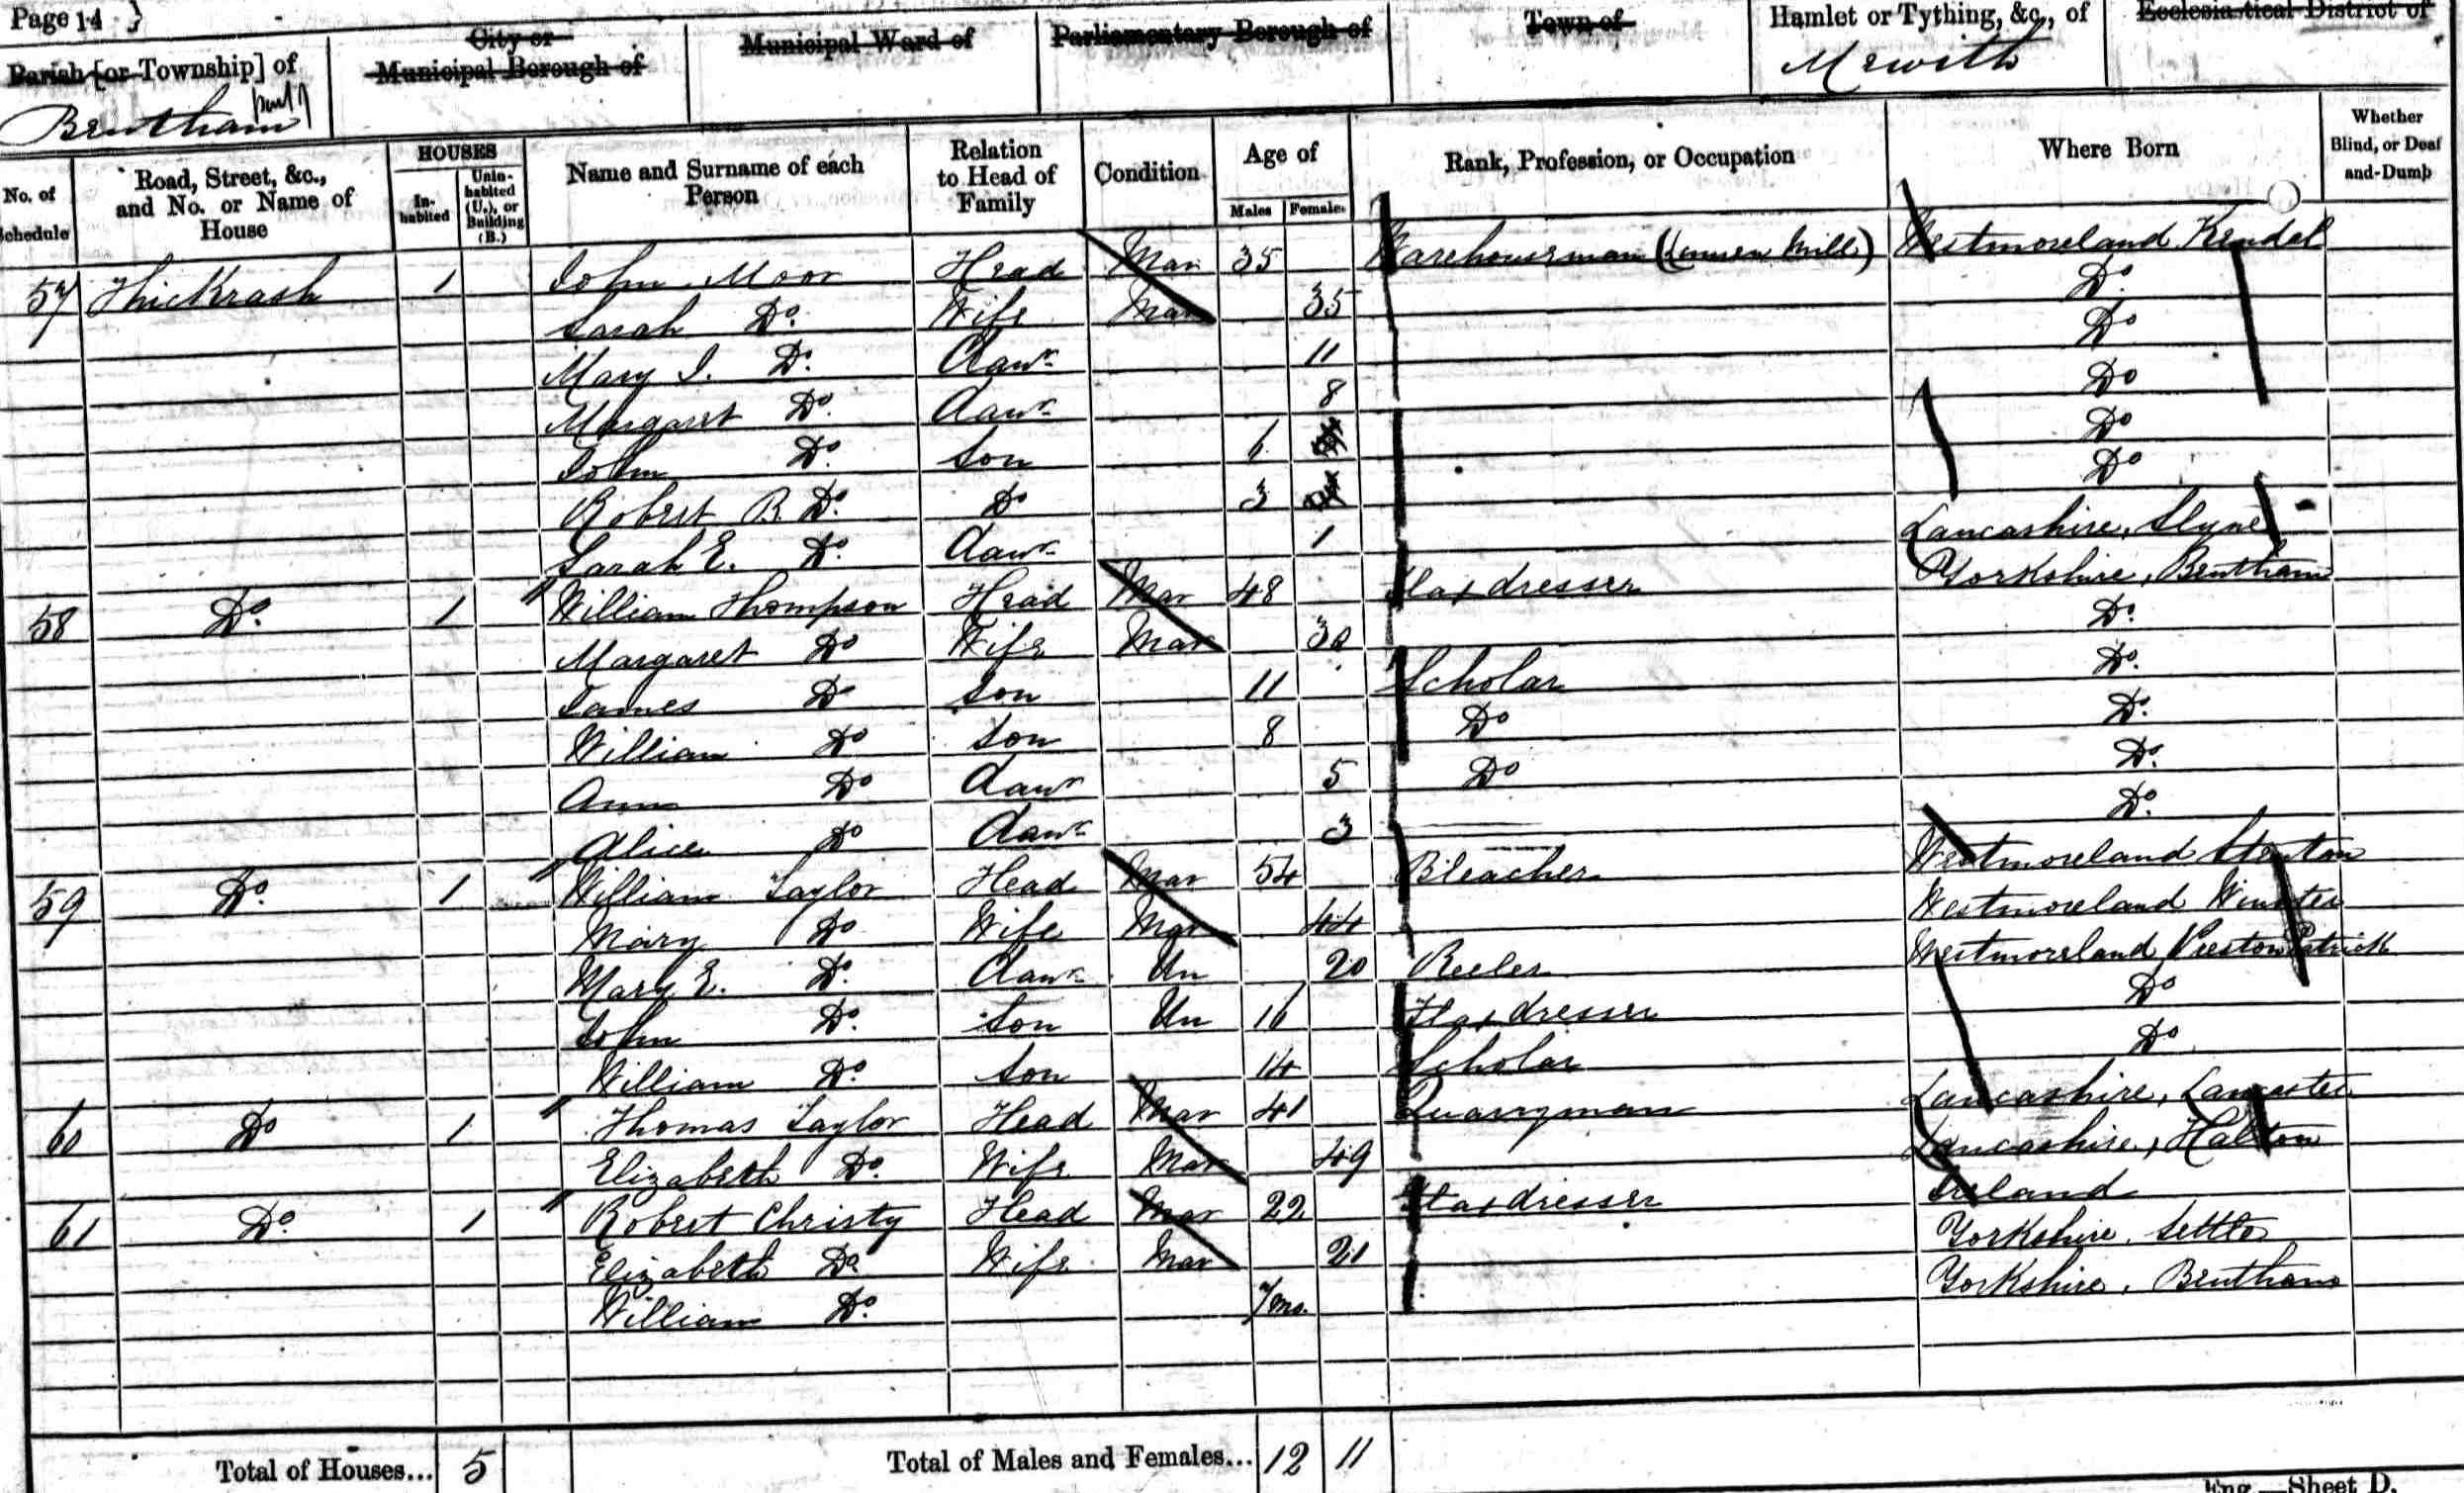 Page 14 }
City or Municipal Borough of
Municipal Ward of
Parliamentary Borough of
Town of
Hamlet or Tything, &c., of
Ecclesiastical District of
Parish [or Township] of
Mewith
Bentham part
No. of Schedule
Road, Street, &c., and No. or Name of House
HOUSES
In-habited
Unin-habited (U.), or Building (B.)
Name and Surname of each Person
Relation to Head of Family
Condition
Age of
Males
Females
Rank, Profession, or Occupation
Where Born
Whether Blind, or Deaf-and-Dumb
57 Thickrash 1 John Moor Head Mar 35 Warehouseman (Linnen Mill) Westmoreland Kendal
Sarah Do. Wife Mar 35 Do.
Mary I. Do. Dawr 11 Do
Margaret Do. Dawr 8 Do
John Do. Son 6 Do
Robert B. Do. Do 3 Do
Sarah E. Do. Dawr 1 Lancashire, Slyne
58 Do. 1 William Thompson Head Mar 48 Flaxdresser Yorkshire, Bentham
Margaret Do Wife Mar 30 Do.
James Do Son 11 Scholar Do.
William Do Son 8 Do Do.
Ann Do Dawr 5 Do Do.
Alice Do Dawr 3 Do.
59 Do. 1 William Taylor Head Mar 54 Bleacher Westmoreland Stenton
Mary Do Wife Mar 44 Westmoreland Winster
Mary E. Do. Dawr Un 20 Reeler Westmoreland Preston Patrick
John Do. Son Un 16 Flaxdresser Do
William Do. Son 14 Scholar Do
60 Do 1 Thomas Taylor Head Mar 41 Quarryman Lancashire, Lancaster
Elizabeth Do. Wife Mar 49 Lancashire, Halton
61 Do. 1 Robert Christy Head Mar 22 Flaxdresser Ireland
Elizabeth Do Wife Mar 21 Yorkshire, Settle
William Do. 7 mo. Yorkshire, Bentham
Total of Houses... 5
Total of Males and Females... 12 11
Eng.—Sheet D.